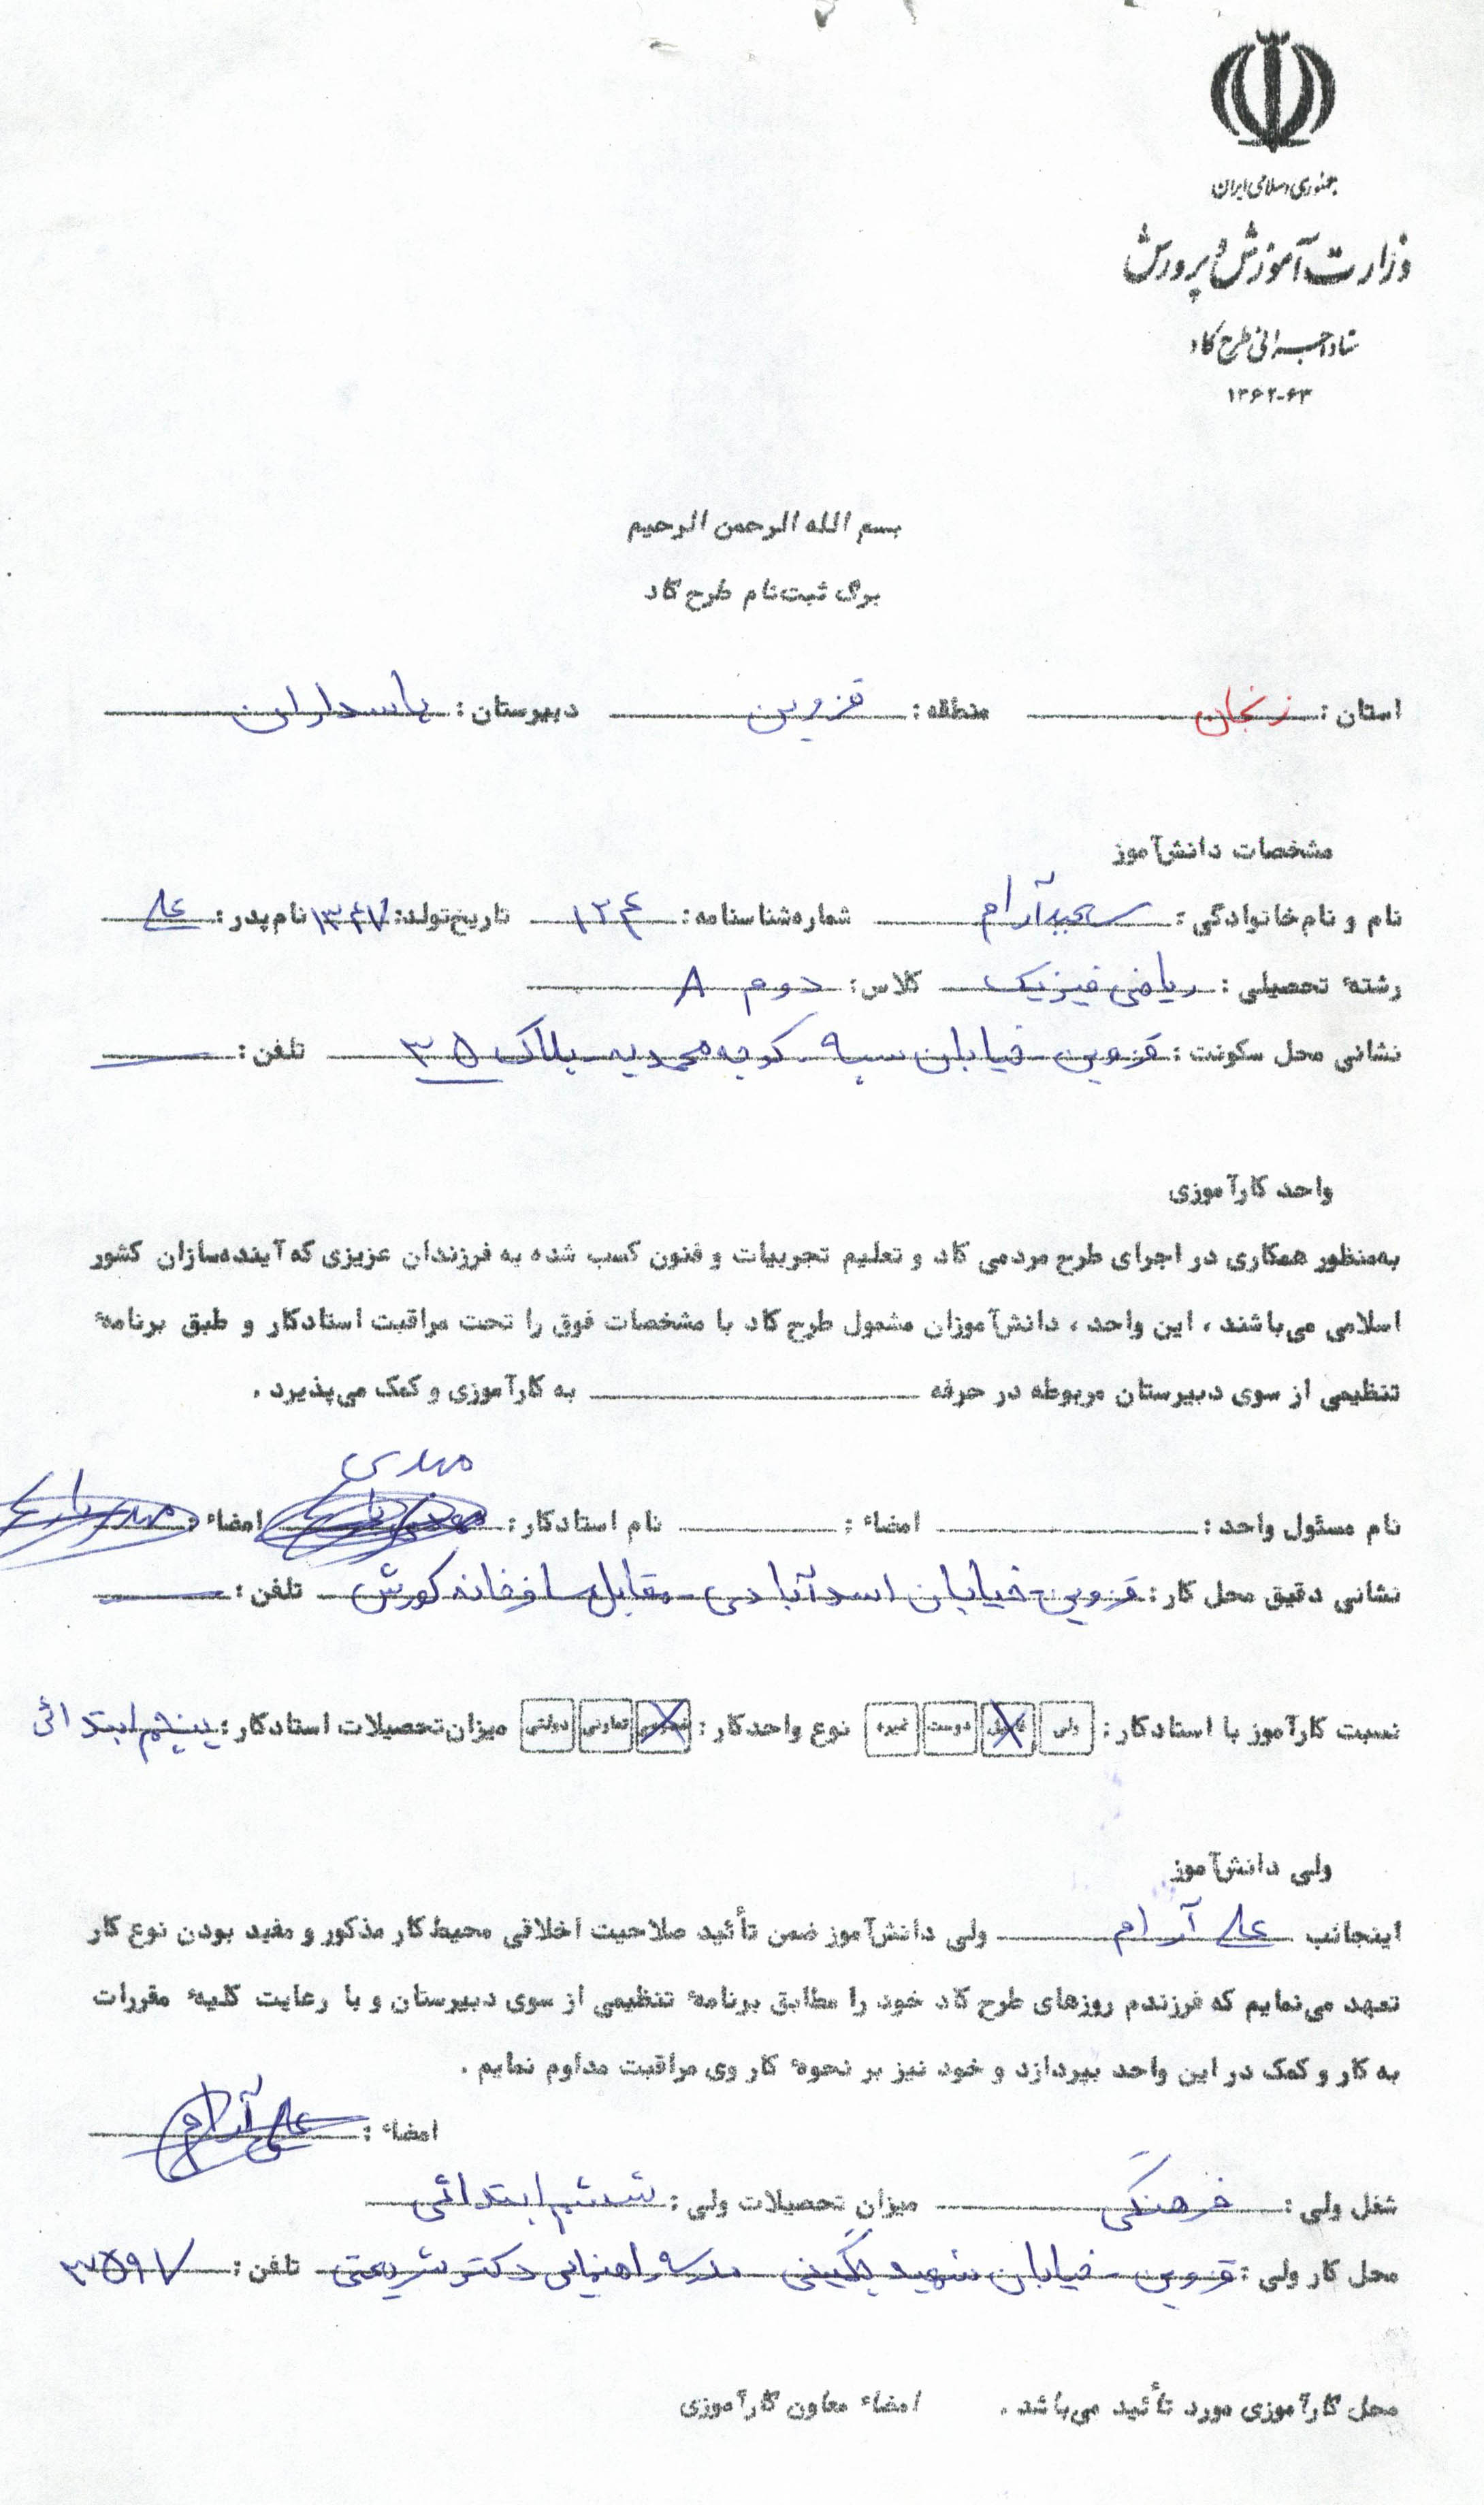 جمهوری اسلامی ایران
وزارت آموزش و پرورش
ستاد اجرائی طرح کاد
۱۳۶۲-۶۳
بسم الله الرحمن الرحیم
برگ ثبت‌نام طرح کاد
استان : زنجان منطقه : قزوین دبیرستان : پاسداران
مشخصات دانش‌آموز
نام و نام‌خانوادگی : سعید آرام شماره شناسنامه : ۱۲۴ تاریخ‌تولد : ۱۳۴۷ نام پدر : علی
رشتهٔ تحصیلی : ریاضی فیزیک کلاس : دوم A
نشانی محل سکونت : قزوین - خیابان سپه - کوچه محمدیه - پلاک ۳۵ تلفن :
واحد کارآموزی
به‌منظور همکاری در اجرای طرح مردمی کاد و تعلیم تجربیات و فنون کسب شده به فرزندان عزیزی که آینده‌سازان کشور
اسلامی می‌باشند ، این واحد ، دانش‌آموزان مشمول طرح کاد با مشخصات فوق را تحت مراقبت استادکار و طبق برنامهٔ
تنظیمی از سوی دبیرستان مربوطه در حرفه به کارآموزی و کمک می‌پذیرد .
مهدی
نام مسئول واحد : امضاء : نام استادکار : امضاء :
نشانی دقیق محل کار : قزوین - خیابان اسدآبادی - مقابل مسافرخانه کورش تلفن :
نسبت کارآموز با استادکار : ولی فامیل دوست غیره نوع واحدکار : تعاونی دولتی میزان تحصیلات استادکار : پنجم ابتدائی
ولی دانش‌آموز
اینجانب علی آرام ولی دانش‌آموز ضمن تأئید صلاحیت اخلاقی محیط کار مذکور و مفید بودن نوع کار
تعهد می‌نمایم که فرزندم روزهای طرح کاد خود را مطابق برنامهٔ تنظیمی از سوی دبیرستان و با رعایت کلیهٔ مقررات
به کار و کمک در این واحد بپردازد و خود نیز بر نحوهٔ کار وی مراقبت مداوم نمایم .
امضاء : علی آرام
شغل ولی : فرهنگی میزان تحصیلات ولی : ششم ابتدائی
محل کار ولی : قزوین - خیابان شهید چگینی مدرسه راهنمایی دکتر شریعتی تلفن : ۳۵۹۷
محل کارآموزی مورد تأئید می‌باشد . امضاء معاون کارآموزی